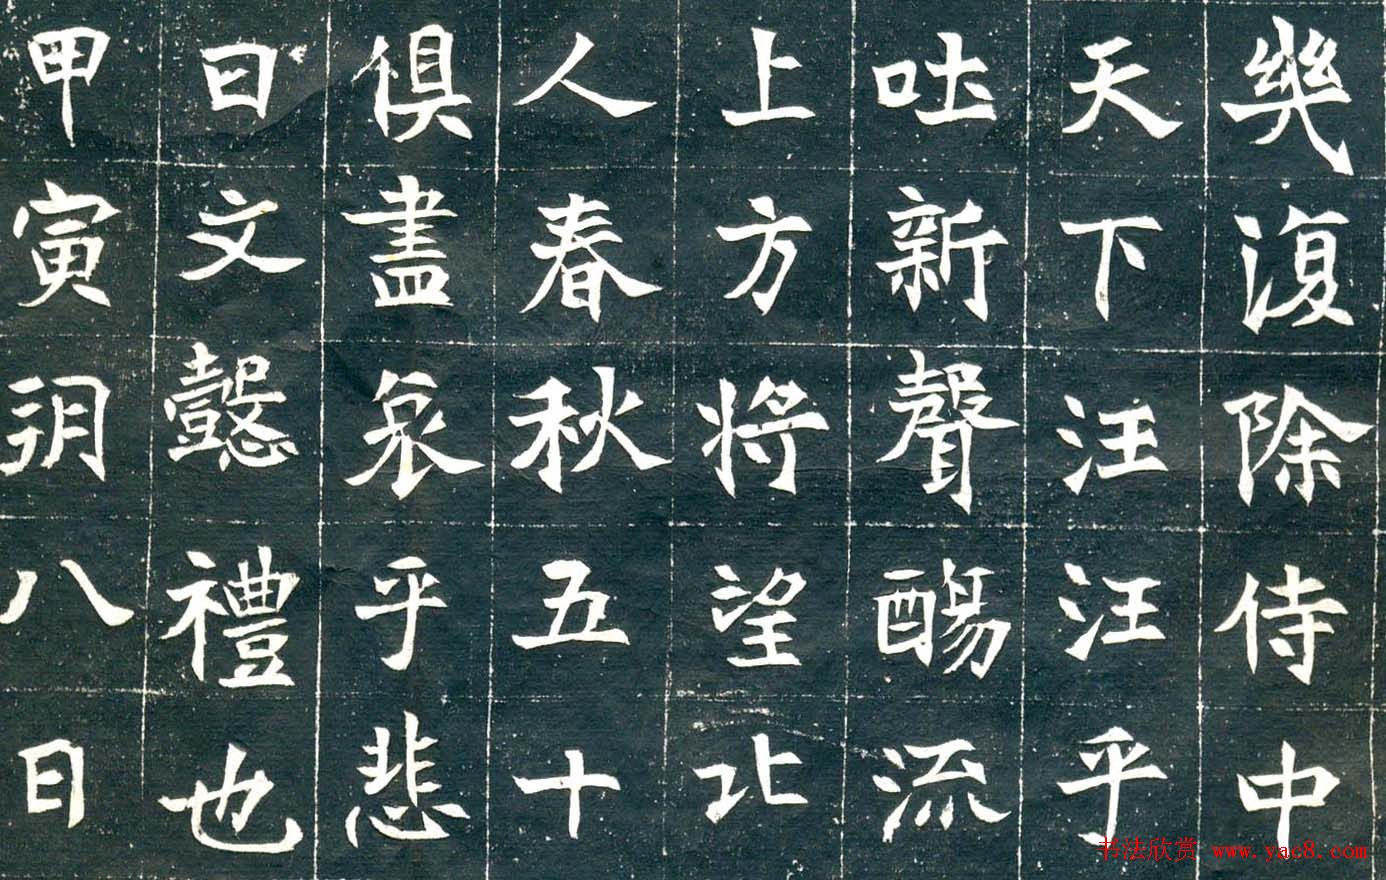 幾復除侍中
天下汪汪乎
吐新聲流
上方將望北
人春秋五十
俱盡哀乎悲
曰文懿禮也
甲寅朔八日
书法欣赏 www.yac8.com